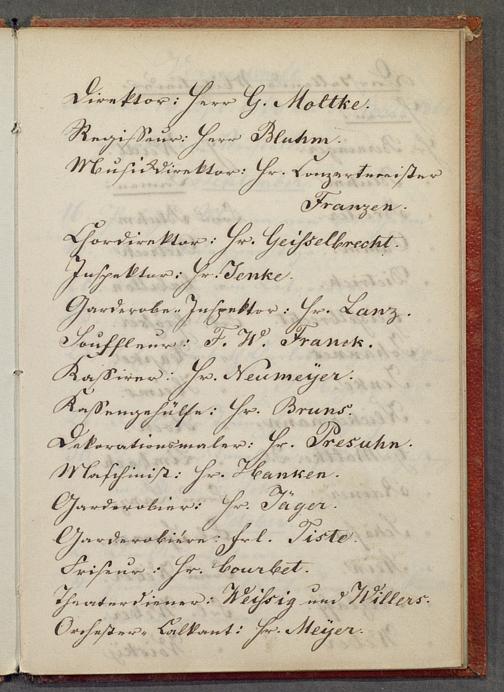 Direktor: Herr G. Moltke.
Regisseur: Herr Bluhm.
Musikdirektor: Hr. Conzertmeister
Franzen.
Chordirektor: Hr. Geisselbrecht.
Inspektor: Hr. Jenke.
Garderobe-Inspektor: Hr. Lanz.
Souffleur: F. W. Franck.
Kassirer: Hr. Neumeÿer.
Kassengehülfe: Hr. Bruns.
Dekorationsmaler: Hr. Presuhn.
Maschinist: Hr. Hanken.
Garderobier: Hr. Jäger.
Garderobiére: Frl. Tiste.
Friseur: Hr. Courbet.
Theaterdiener: Weihsig und Willers.
Orchester-Calkant: Hr. Meÿer.